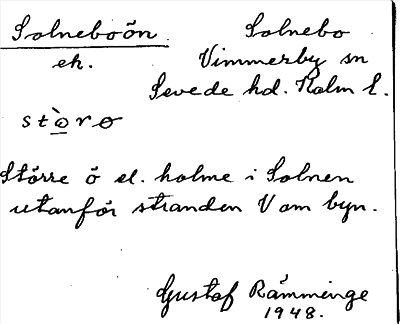 Solneboön Solnebo
ek. Vimmerby sn
Sevede hd. Kalm l.
Större ö el. holme i Solnen
utanför stranden V om byn.
Gustaf Rämminge
1948.